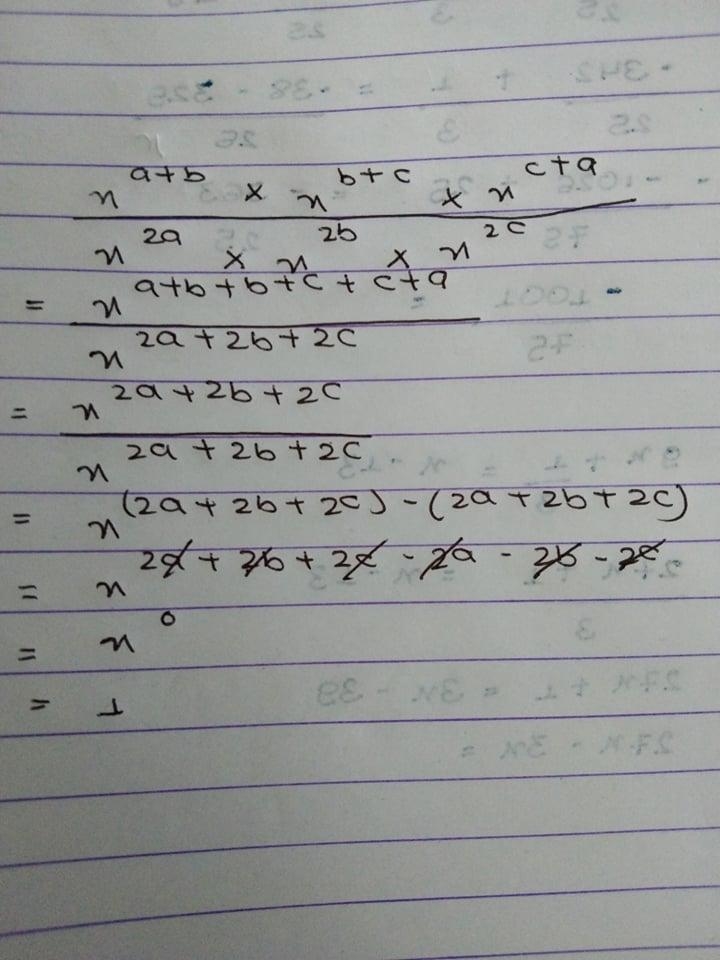 x^(a+b) × x^(b+c) × x^(c+a)
x^(2a) × x^(2b) × x^(2c)
= x^(a+b+b+c+c+a)
x^(2a+2b+2c)
= x^(2a+2b+2c)
x^(2a+2b+2c)
= x^((2a+2b+2c)-(2a+2b+2c))
= x^(2a+2b+2c-2a-2b-2c)
= x^0
= 1